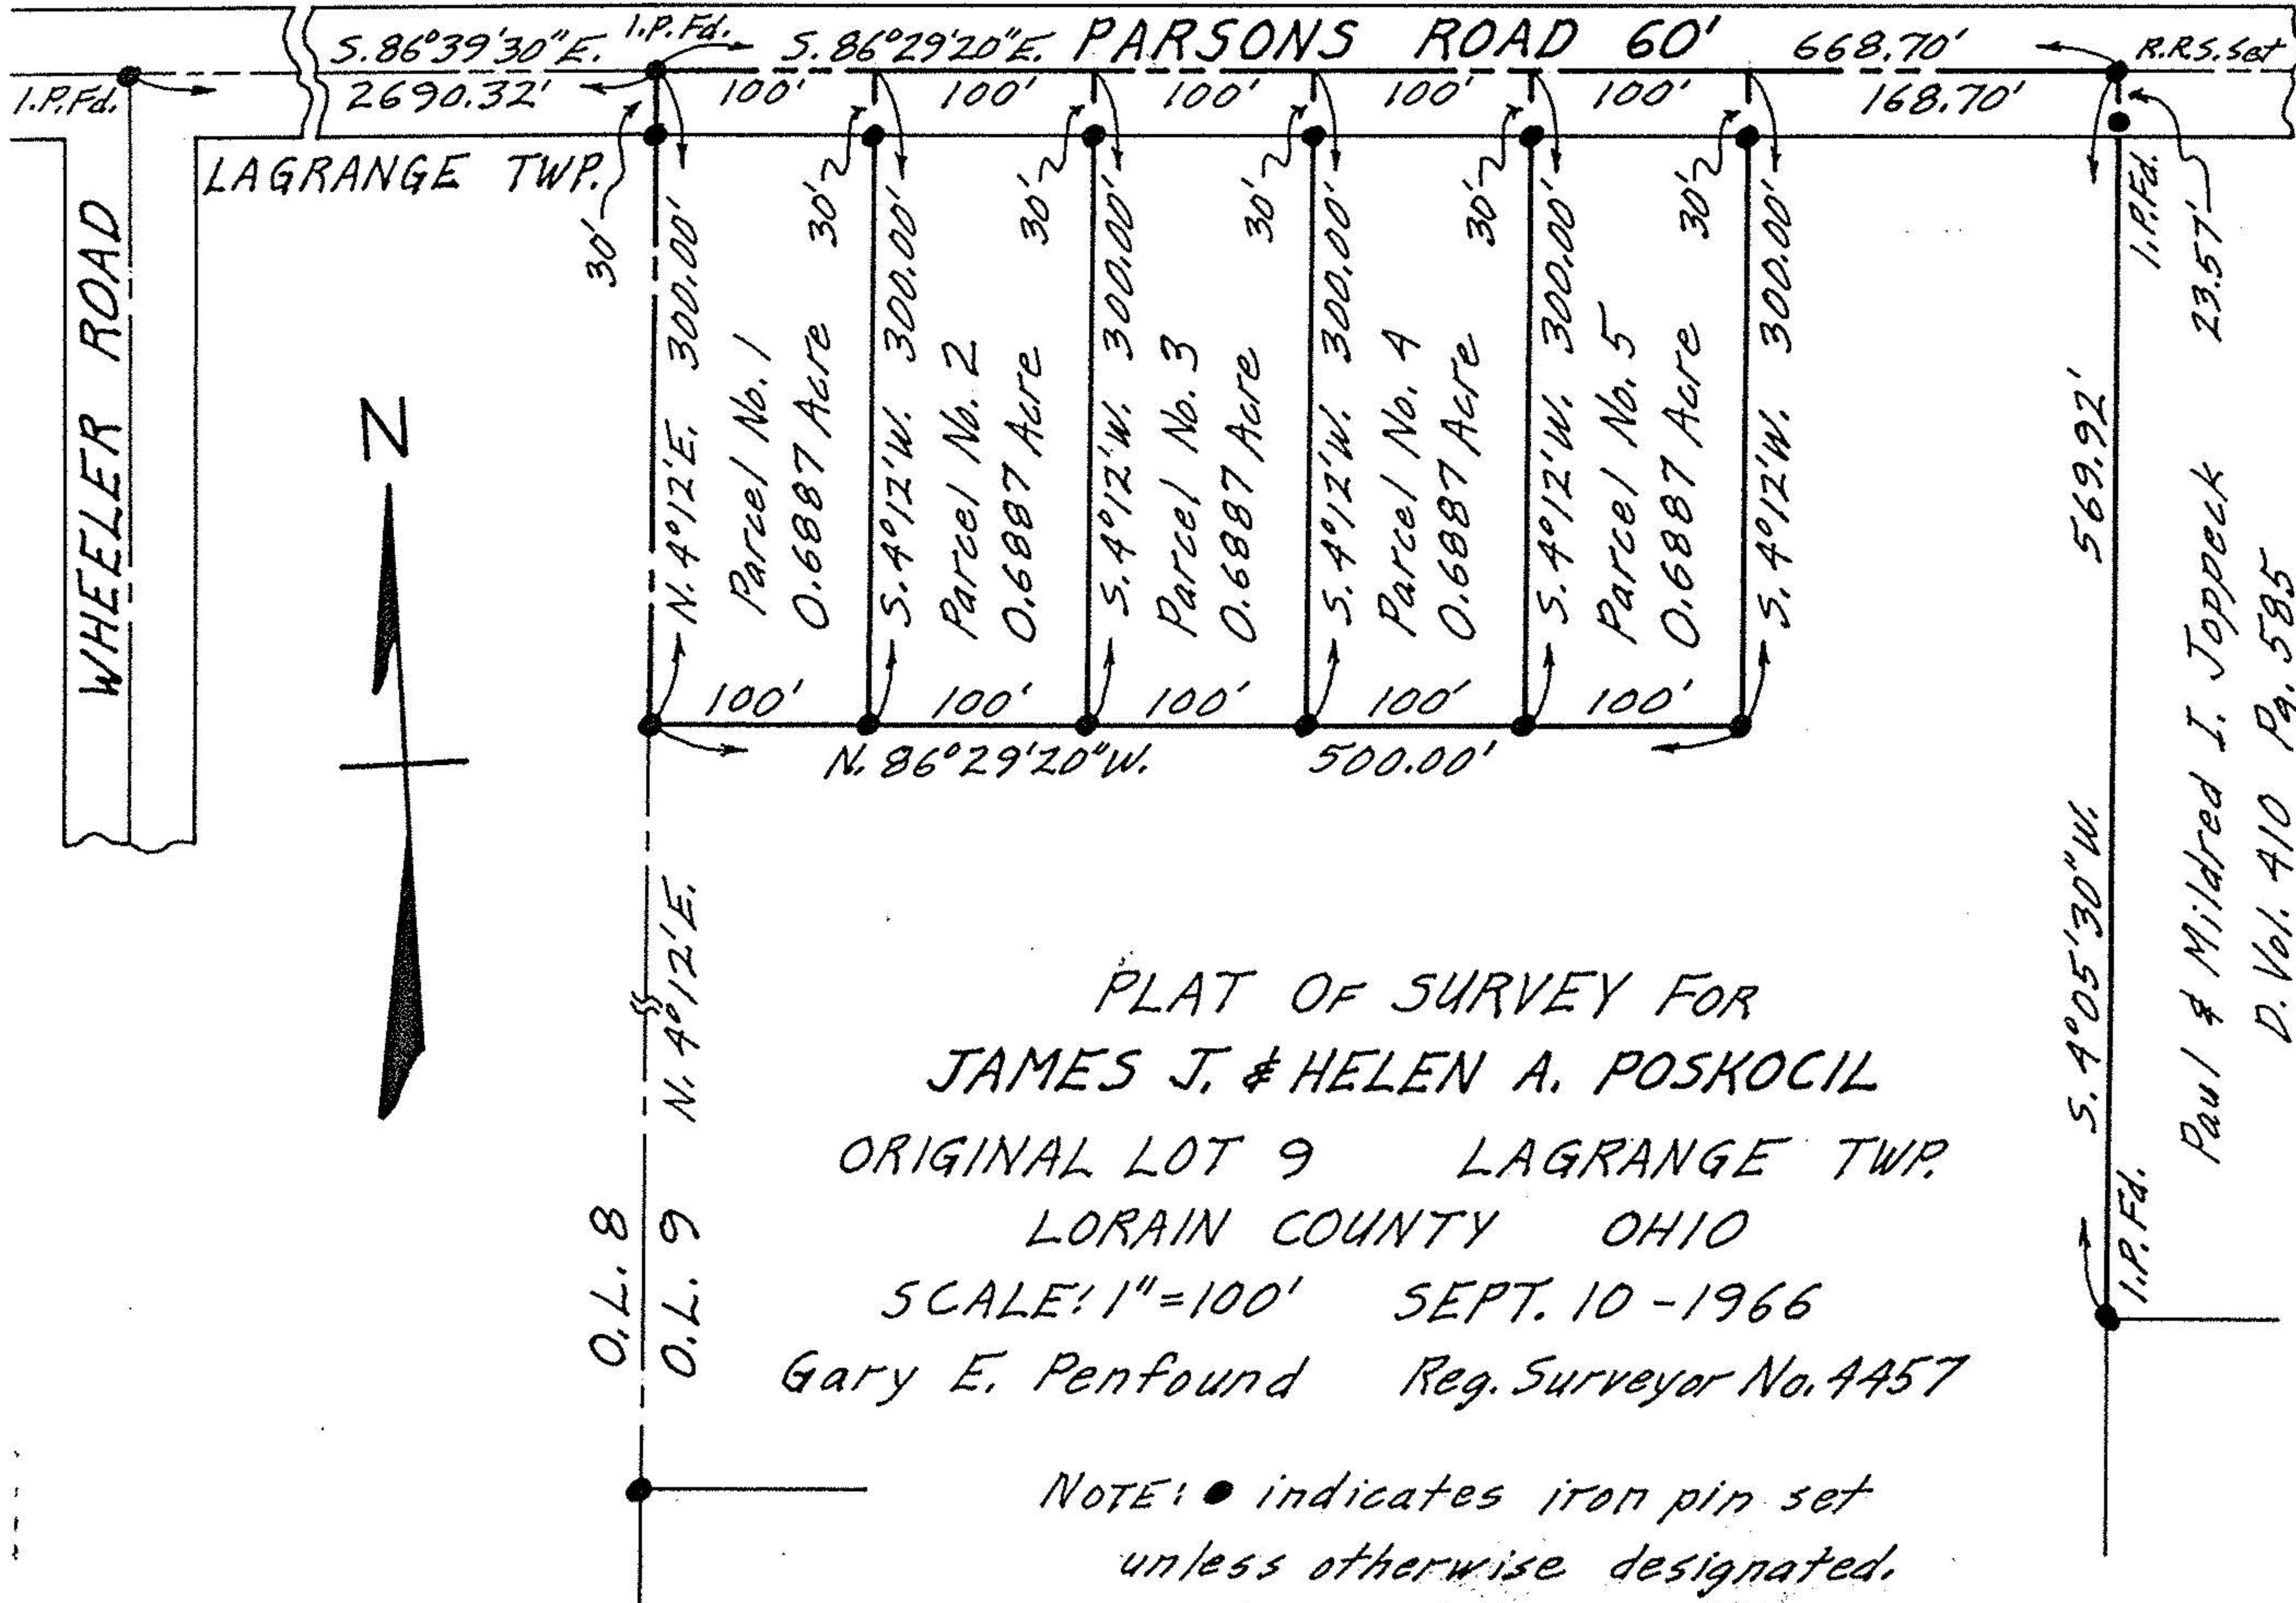 S. 86°39'30"E. I.P.Fd. S. 86°29'20"E. PARSONS ROAD 60' 668.70' R.R.S. Set
I.P.Fd. 2690.32' 100' 100' 100' 100' 100' 168.70'
LAGRANGE TWP.
WHEELER ROAD
N
30'
N. 4°12'E. 300.00'
Parcel No. 1
0.6887 Acre
30'
S. 4°12'W. 300.00'
Parcel No. 2
0.6887 Acre
30'
S. 4°12'W. 300.00'
Parcel No. 3
0.6887 Acre
30'
S. 4°12'W. 300.00'
Parcel No. 4
0.6887 Acre
30'
S. 4°12'W. 300.00'
Parcel No. 5
0.6887 Acre
30'
S. 4°12'W. 300.00'
100' 100' 100' 100' 100'
N. 86°29'20"W. 500.00'
S. 4°05'30"W. 569.92'
I.P.Fd.
23.57'
I.P.Fd.
Paul & Mildred I. Joppeck
D. Vol. 410 Pg. 585
N. 4°12'E.
O.L. 8
O.L. 9
PLAT OF SURVEY FOR
JAMES J. & HELEN A. POSKOCIL
ORIGINAL LOT 9 LAGRANGE TWP.
LORAIN COUNTY OHIO
SCALE: 1"=100' SEPT. 10-1966
Gary E. Penfound Reg. Surveyor No. 4457
NOTE: ● indicates iron pin set
unless otherwise designated.